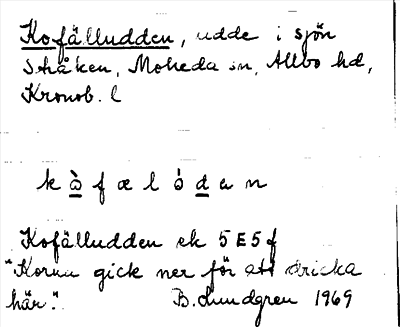 Kofälludden, udde i sjön
Skåken, Moheda sn, Allbo hd,
Kronob. l
k ò̱ f æ l ó d̲ e n
Kofälludden ek 5E5f
"Korna gick ner för att dricka
här." B. Lundgren 1969